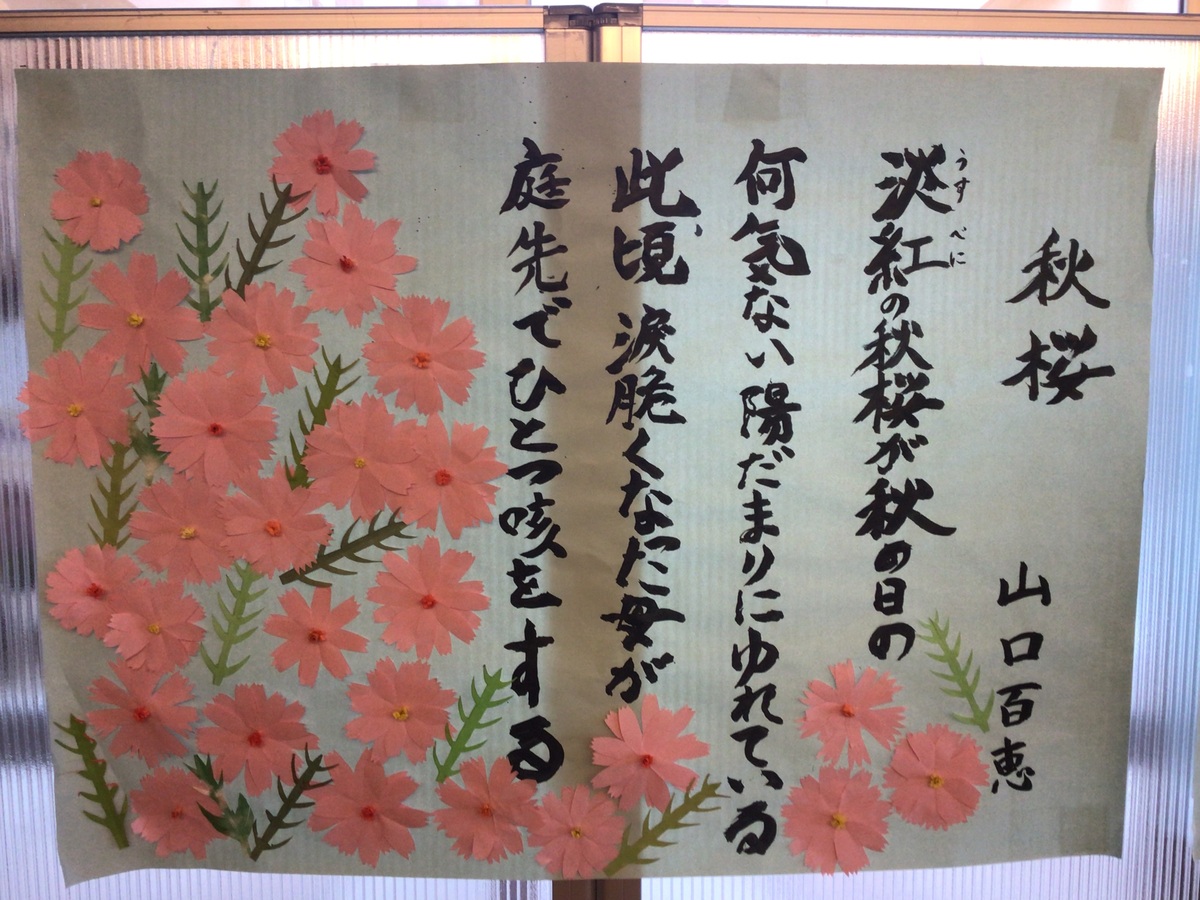 秋桜
山口百恵
淡紅の秋桜が秋の日の
うすべに
何気ない陽だまりにゆれている
此頃 涙脆くなった母が
庭先でひとつ咳をする